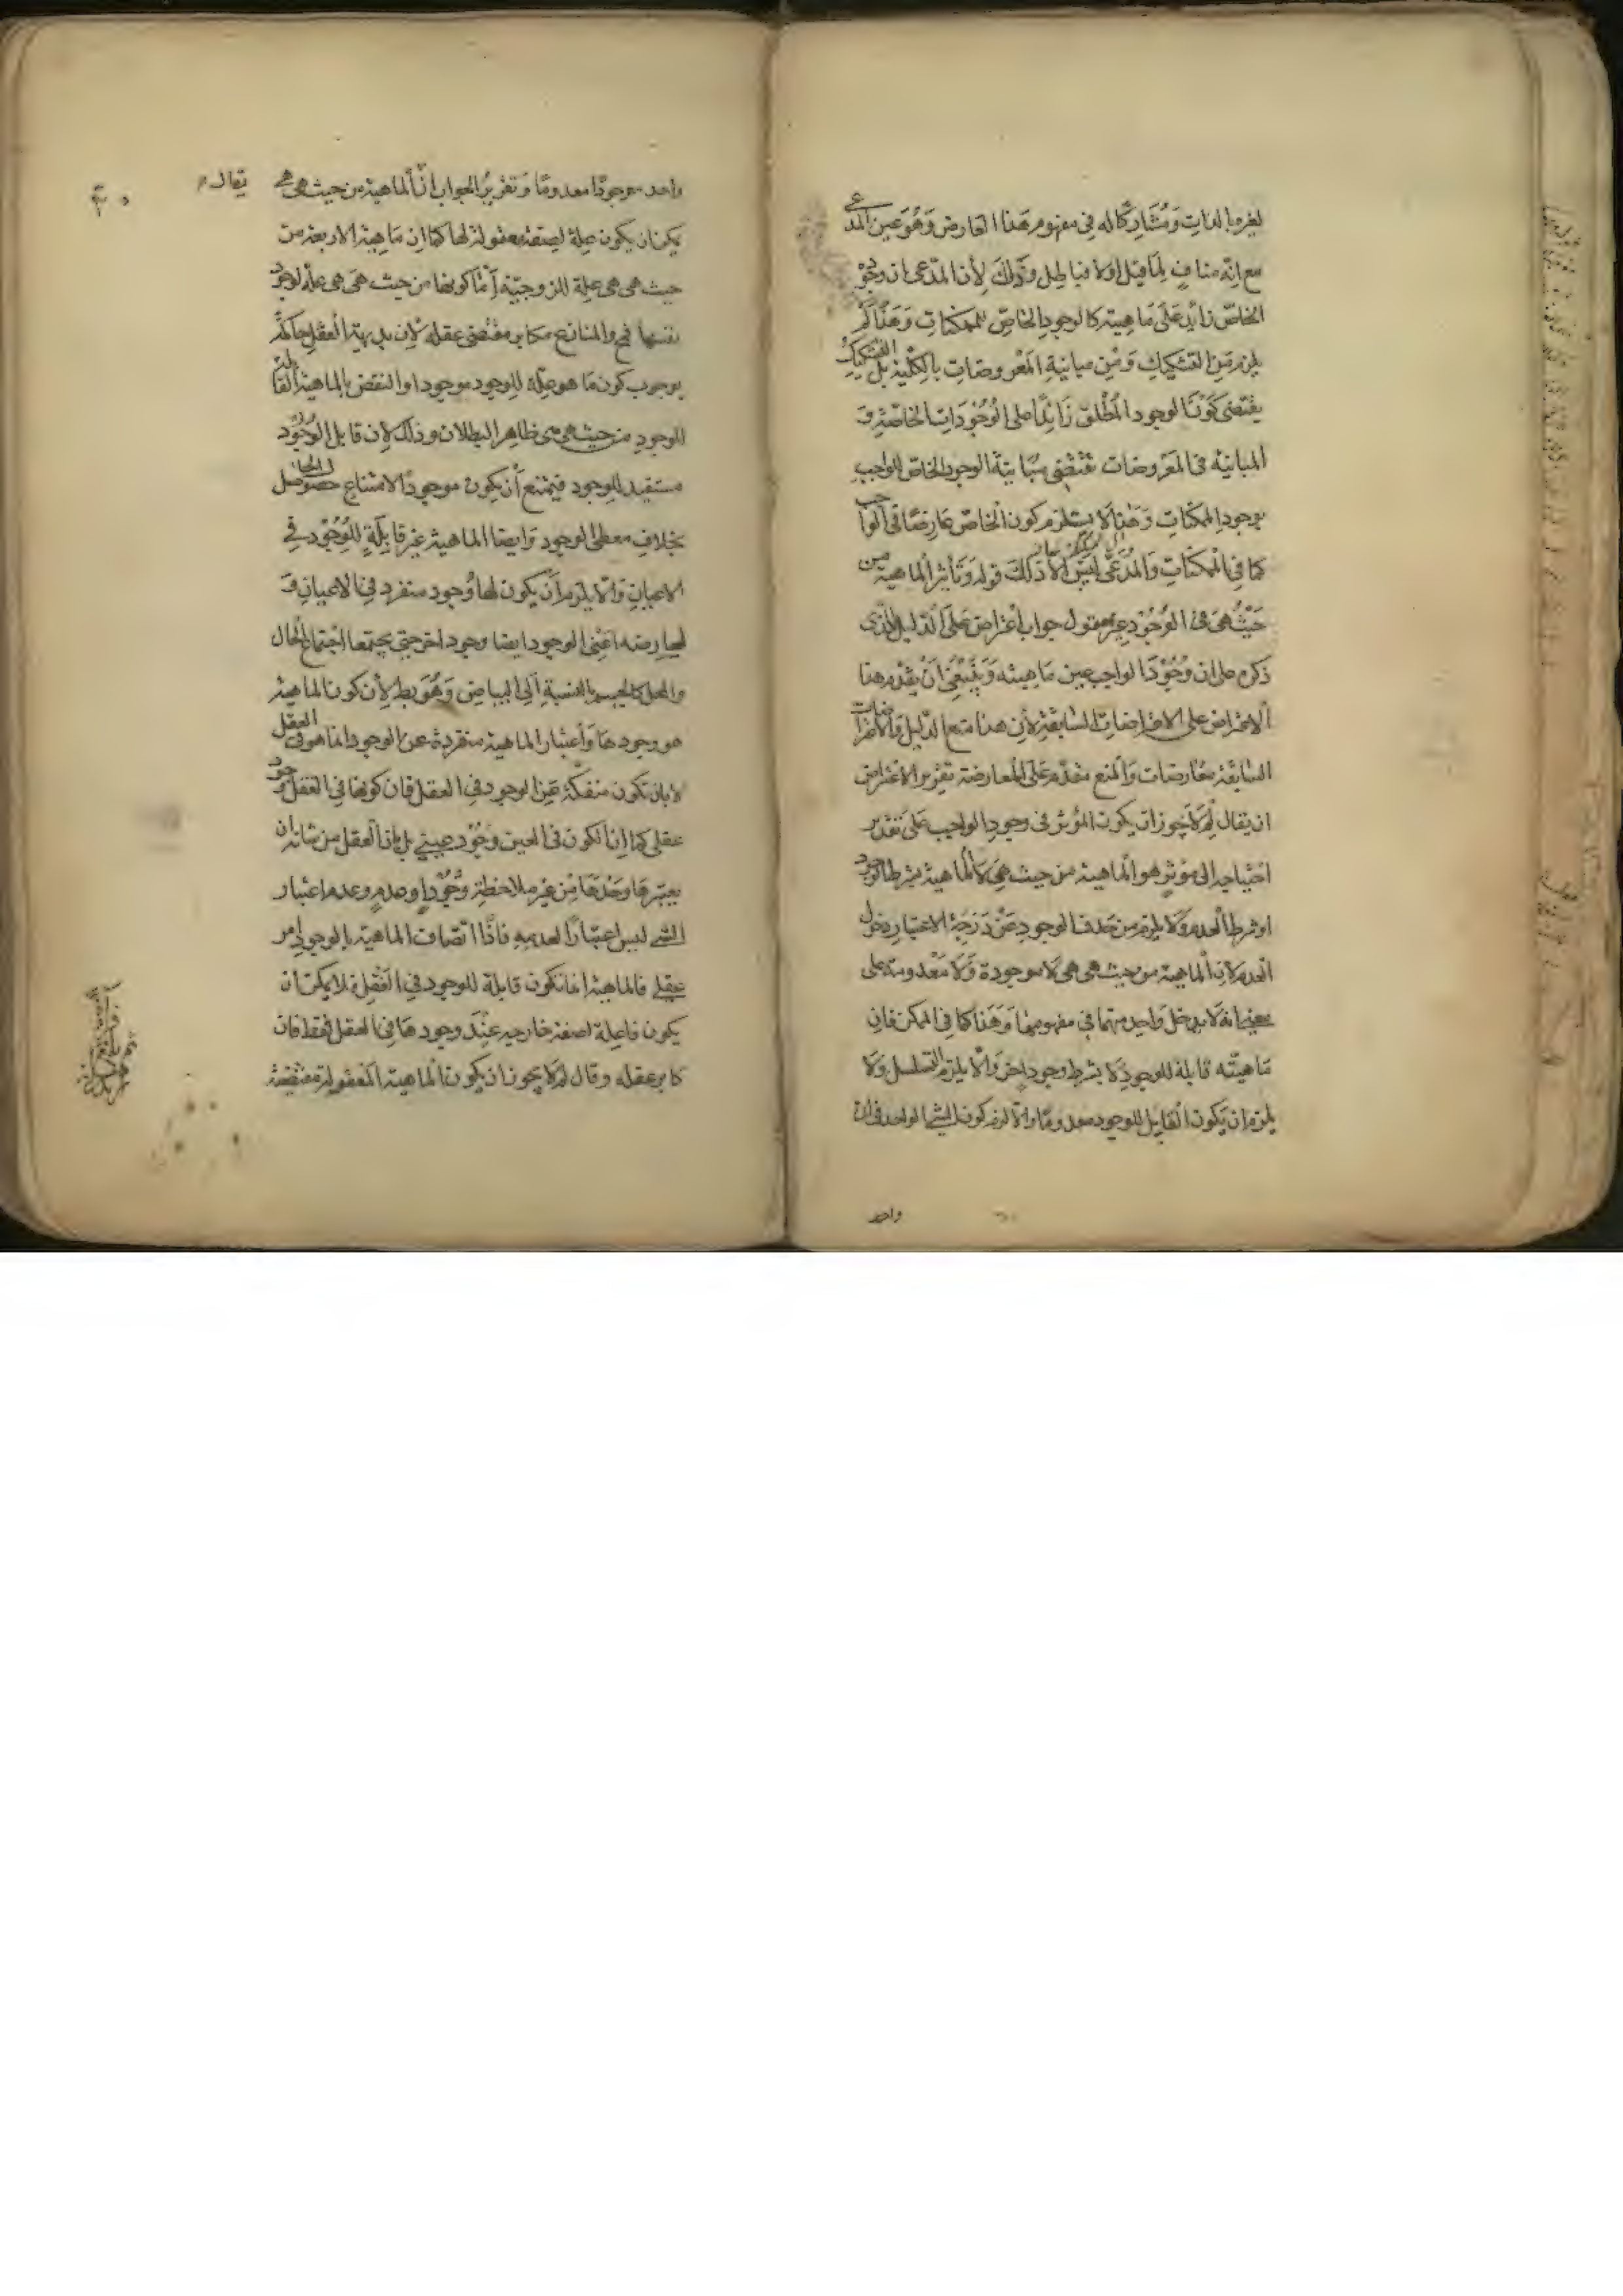 لغيره بالذات ومشاركا له في مفهوم هذا العارض وهو عين المدعى
مع انه مناف لما قيل اولا فباطل وذلك لأن المدعى ان وجوده
الخاص زايد على ماهيته كالوجود الخاص للممكنات وهذا لم
يلزم من التشكيك ومن مباينة المعروضات بالكلية بل التشكيك
يقتضى كون الوجود المطلق زائدا على الوجودات الخاصة و
المباينة فى المعروضات تقتضى مباينة الوجود الخاص للواجب
لوجود الممكنات وهذا لا يستلزم كون الخاص عارضا في الواجب
كما في الممكنات والمدعى ليس الا ذلك قوله وتأثير الماهية من
حيث هى فى الوجود غير معقول جواب اعتراض على الدليل الذى
ذكره على ان وجود الواجب عين ماهيته وينبغي ان يقدم هذا
الاعتراض على الاعتراضات السابقة لأن هذا منع الدليل والاعتراضات
السابقة معارضات والمنع مقدم على المعارضة تقرير الاعتراض
ان يقال لم لا يجوز ان يكون المؤثر فى وجود الواجب على تقدير
احتياجه الى مؤثر هو الماهية من حيث هي لا الماهية بشرط الوجود
او شرط العدم ولا يلزم من حذف الوجود عن درجة الاعتبار دخول
العدم لان الماهية من حيث هى هى لا موجودة ولا معدومة على
معنى انه لا يدخل واحد منهما في مفهومها وهذا كما في الممكن فان
ماهيته قابلة للوجود لا بشرط وجود اخر والا يلزم التسلسل ولا
يلزم ان يكون القابل للوجود معدوما والا لزم كون الشئ الواحد فى ان
واحد
واحد موجودا معدوما وتقرير الجواب ان الماهية من حيث هى هى يقال
يمكن ان يكون علة لصفة معقولة لها كما ان ماهية الاربعة من
حيث هى هى علة للزوجية اما كونها من حيث هى هى علة لوجود
نفسها فمح والمنازع مكابر مقتضى عقله لان بديهة العقل حاكمة
بوجوب كون ما هو علة للوجود موجودا والنقض بالماهية القابلة
للوجود من حيث هى هى ظاهر البطلان وذلك لان قابل الوجود
مستفيد للوجود فيمتنع أن يكون موجودا لامتناع حصول الحاصل
بخلاف معطى الوجود وايضا الماهية غير قابلة للوجود في
الاعيان والا يلزم أن يكون لها وجود منفرد في الاعيان و
لعارضه اعنى الوجود ايضا وجود اخر حتى يجتمعا اجتماع الحال
والمحل كالجسم بالنسبة الى البياض وهو بط لأن كون الماهية
هو وجودها واعتبار الماهية منفردة عن الوجود انما هو في العقل
لا بان تكون منفكة عن الوجود في العقل فان كونها في العقل وجود
عقلى كما ان الكون فى العين وجود عينى بل بان العقل من شانه ان
يعتبرها وحدها من غير ملاحظة وجود او عدم وعدم اعتبار
الشئ ليس اعتبارا لعدمه فاذا اتصاف الماهية بالوجود امر
عقلى فالماهية انما تكون قابلة للوجود في العقل فلا يمكن ان
يكون فاعلة لصفة خارجيه عند وجودها في العقل فقط فان
كابر عقله وقال لم لا يجوز ان يكون الماهية المعقولة مقتضية